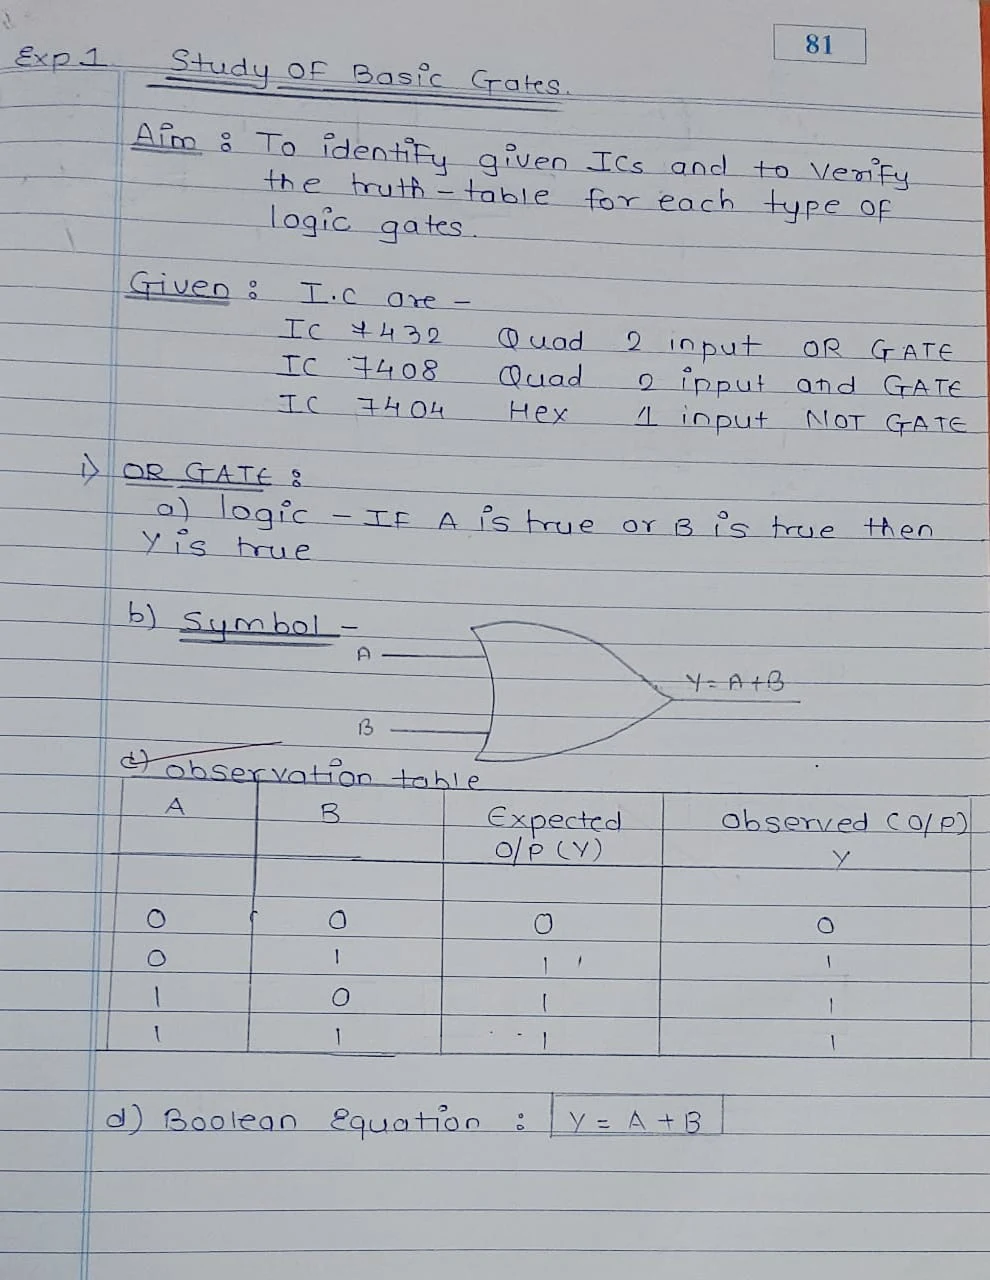 81
Exp 1. Study OF Basic Gates.
Aim : To identify given ICs and to verify
the truth - table for each type of
logic gates.
Given : I.C are -
IC 7432 Quad 2 input OR GATE
IC 7408 Quad 2 input and GATE
IC 7404 Hex 1 input NOT GATE
i) OR GATE :
a) logic - IF A is true or B is true then
Y is true
b) Symbol -
A
Y = A + B
B
c) observation table
A B Expected Observed (O/P)
O/P (Y) Y
0 0 0 0
0 1 1 1
1 0 1 1
1 1 1 1
d) Boolean Equation : Y = A + B